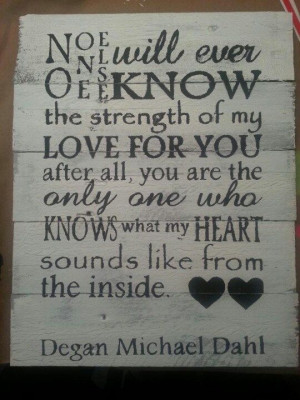 NO ONE ELSE will ever
KNOW
the strength of my
LOVE FOR YOU
after all, you are the
only one who
KNOWS what my HEART
sounds like from
the inside.
Degan Michael Dahl